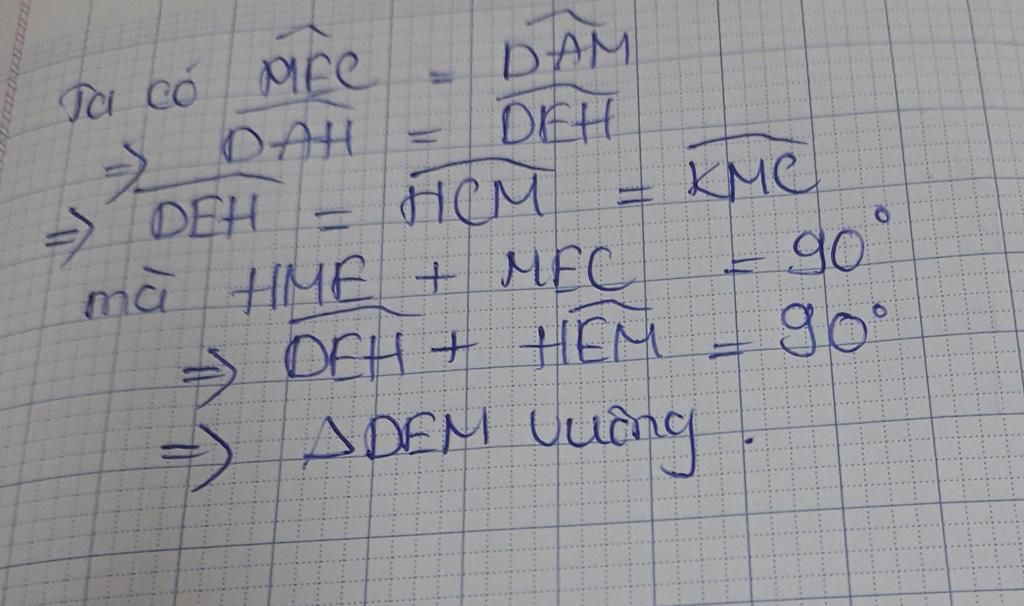 Ta có $\widehat{MEC}$ = $\widehat{DAM}$
⇒ $\widehat{DAH}$ = $\widehat{DEH}$
⇒ $\widehat{DEH}$ = $\widehat{HCM}$ = $\widehat{KMC}$
mà HME + MEC = 90°
⇒ $\widehat{DEH}$ + $\widehat{HEM}$ = 90°
⇒ ΔDEM vuông.